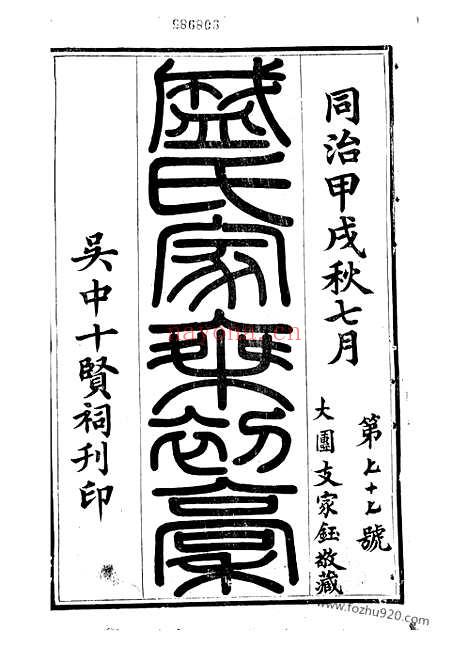 986803
同治甲戌秋七月
第七十七號
大團支家鈺敬藏
盛氏家乘初稾
吳中十賢祠刊印
nayona.cn
www.fozhu920.com